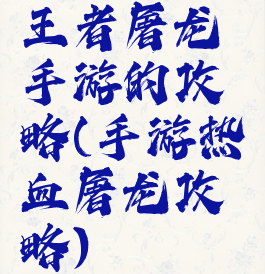 王者屠龙
手游的攻
略(手游热
血屠龙攻
略)